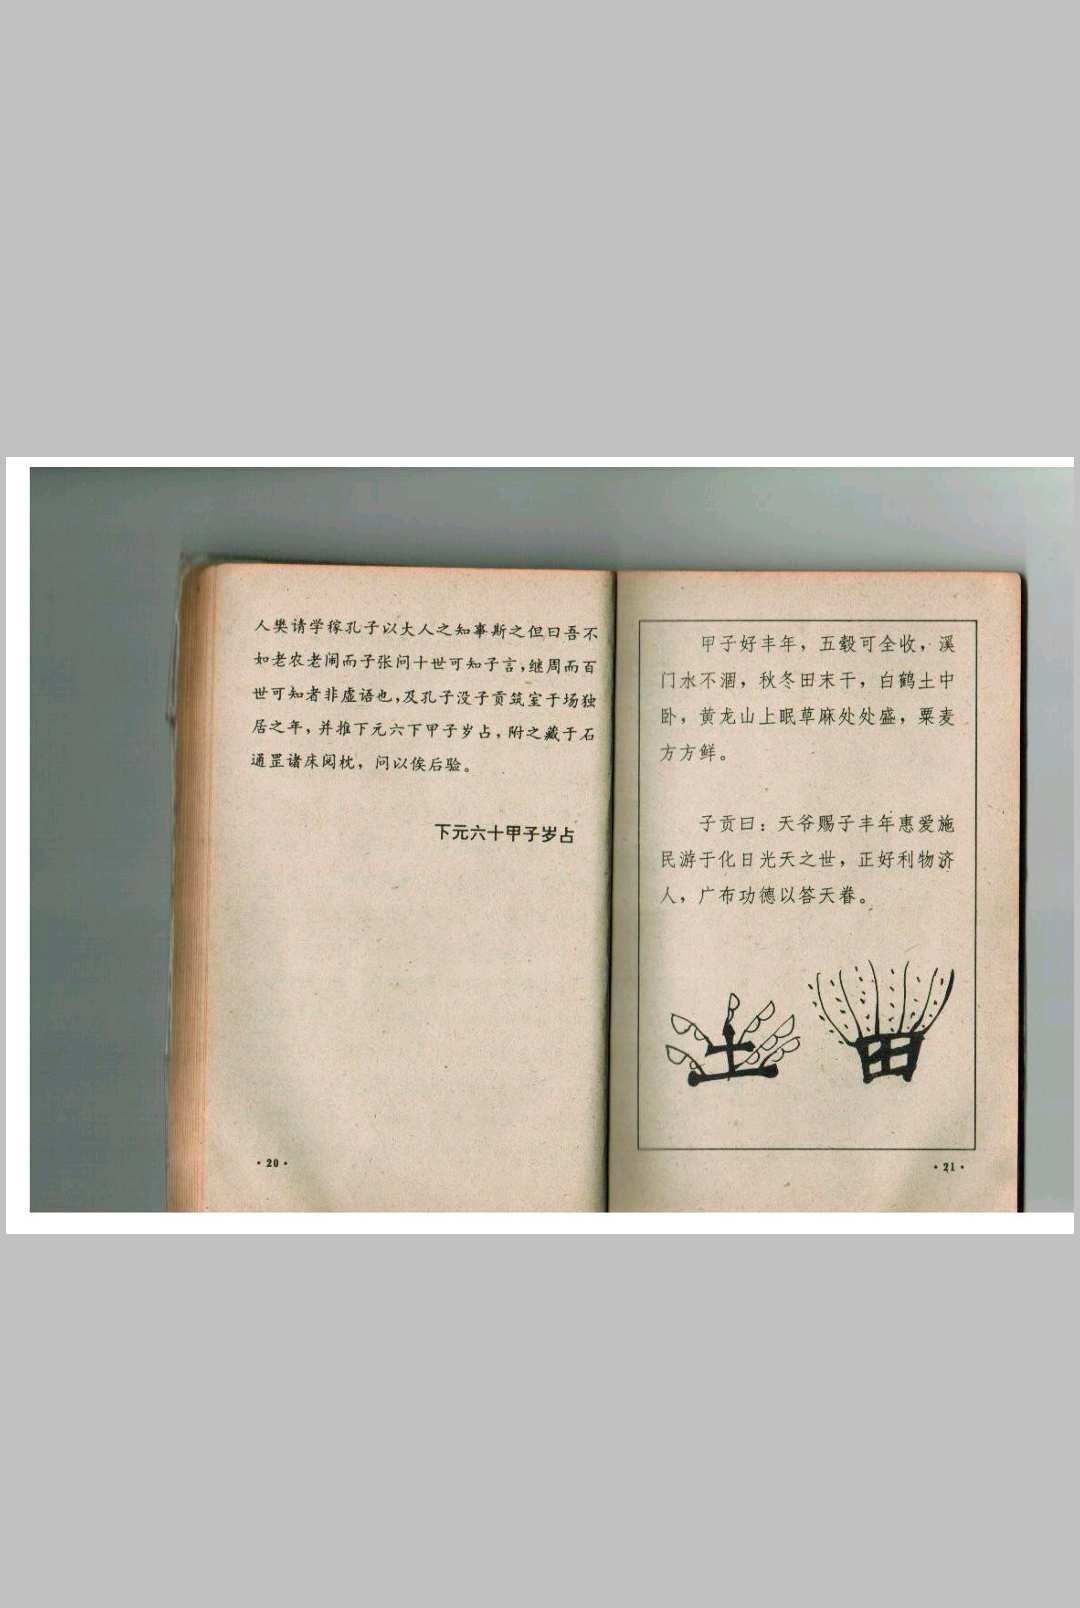 人樊请学稼孔子以大人之知事斯之但曰吾不
如老农老闹而子张问十世可知子言，继周而百
世可知者非虚语也，及孔子没子贡筑室于场独
居之年，并推下元六下甲子岁占，附之藏于石
通罡诸床阅枕，问以俟后验。
下元六十甲子岁占
·20·
甲子好丰年，五毂可全收，溪
门水不涸，秋冬田末干，白鹤土中
卧，黄龙山上眠草麻处处盛，粟麦
方方鲜。
子贡曰：天爷赐子丰年惠爱施
民游于化日光天之世，正好利物济
人，广布功德以答天眷。
土 田
·21·